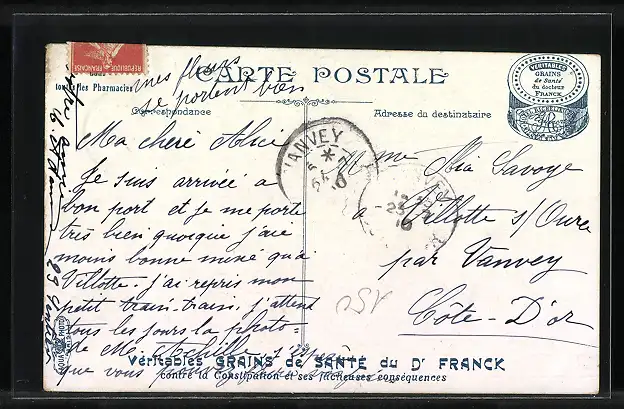 REPUBLIQUE FRANÇAISE
mes fleurs
se portent bien
CARTE POSTALE
toutes les Pharmacies
Correspondance
Adresse du destinataire
VÉRITABLES
GRAINS
de Santé
du docteur
FRANCK
Ma chere Alice
Je suis arrivée a
bon port et je me porte
très bien quoique j'aie
moins bonne mine qu'a
Villotte. j'ai repris mon
petit train-train. j'attend
tous les jours la photo-
de
que vous
VANVEY
Mme Savoye
a Villotte s/Ource
par Vanvey
Côte-D'or
Véritables GRAINS de SANTÉ du Dr FRANCK
contre la Constipation et ses fâcheuses conséquences